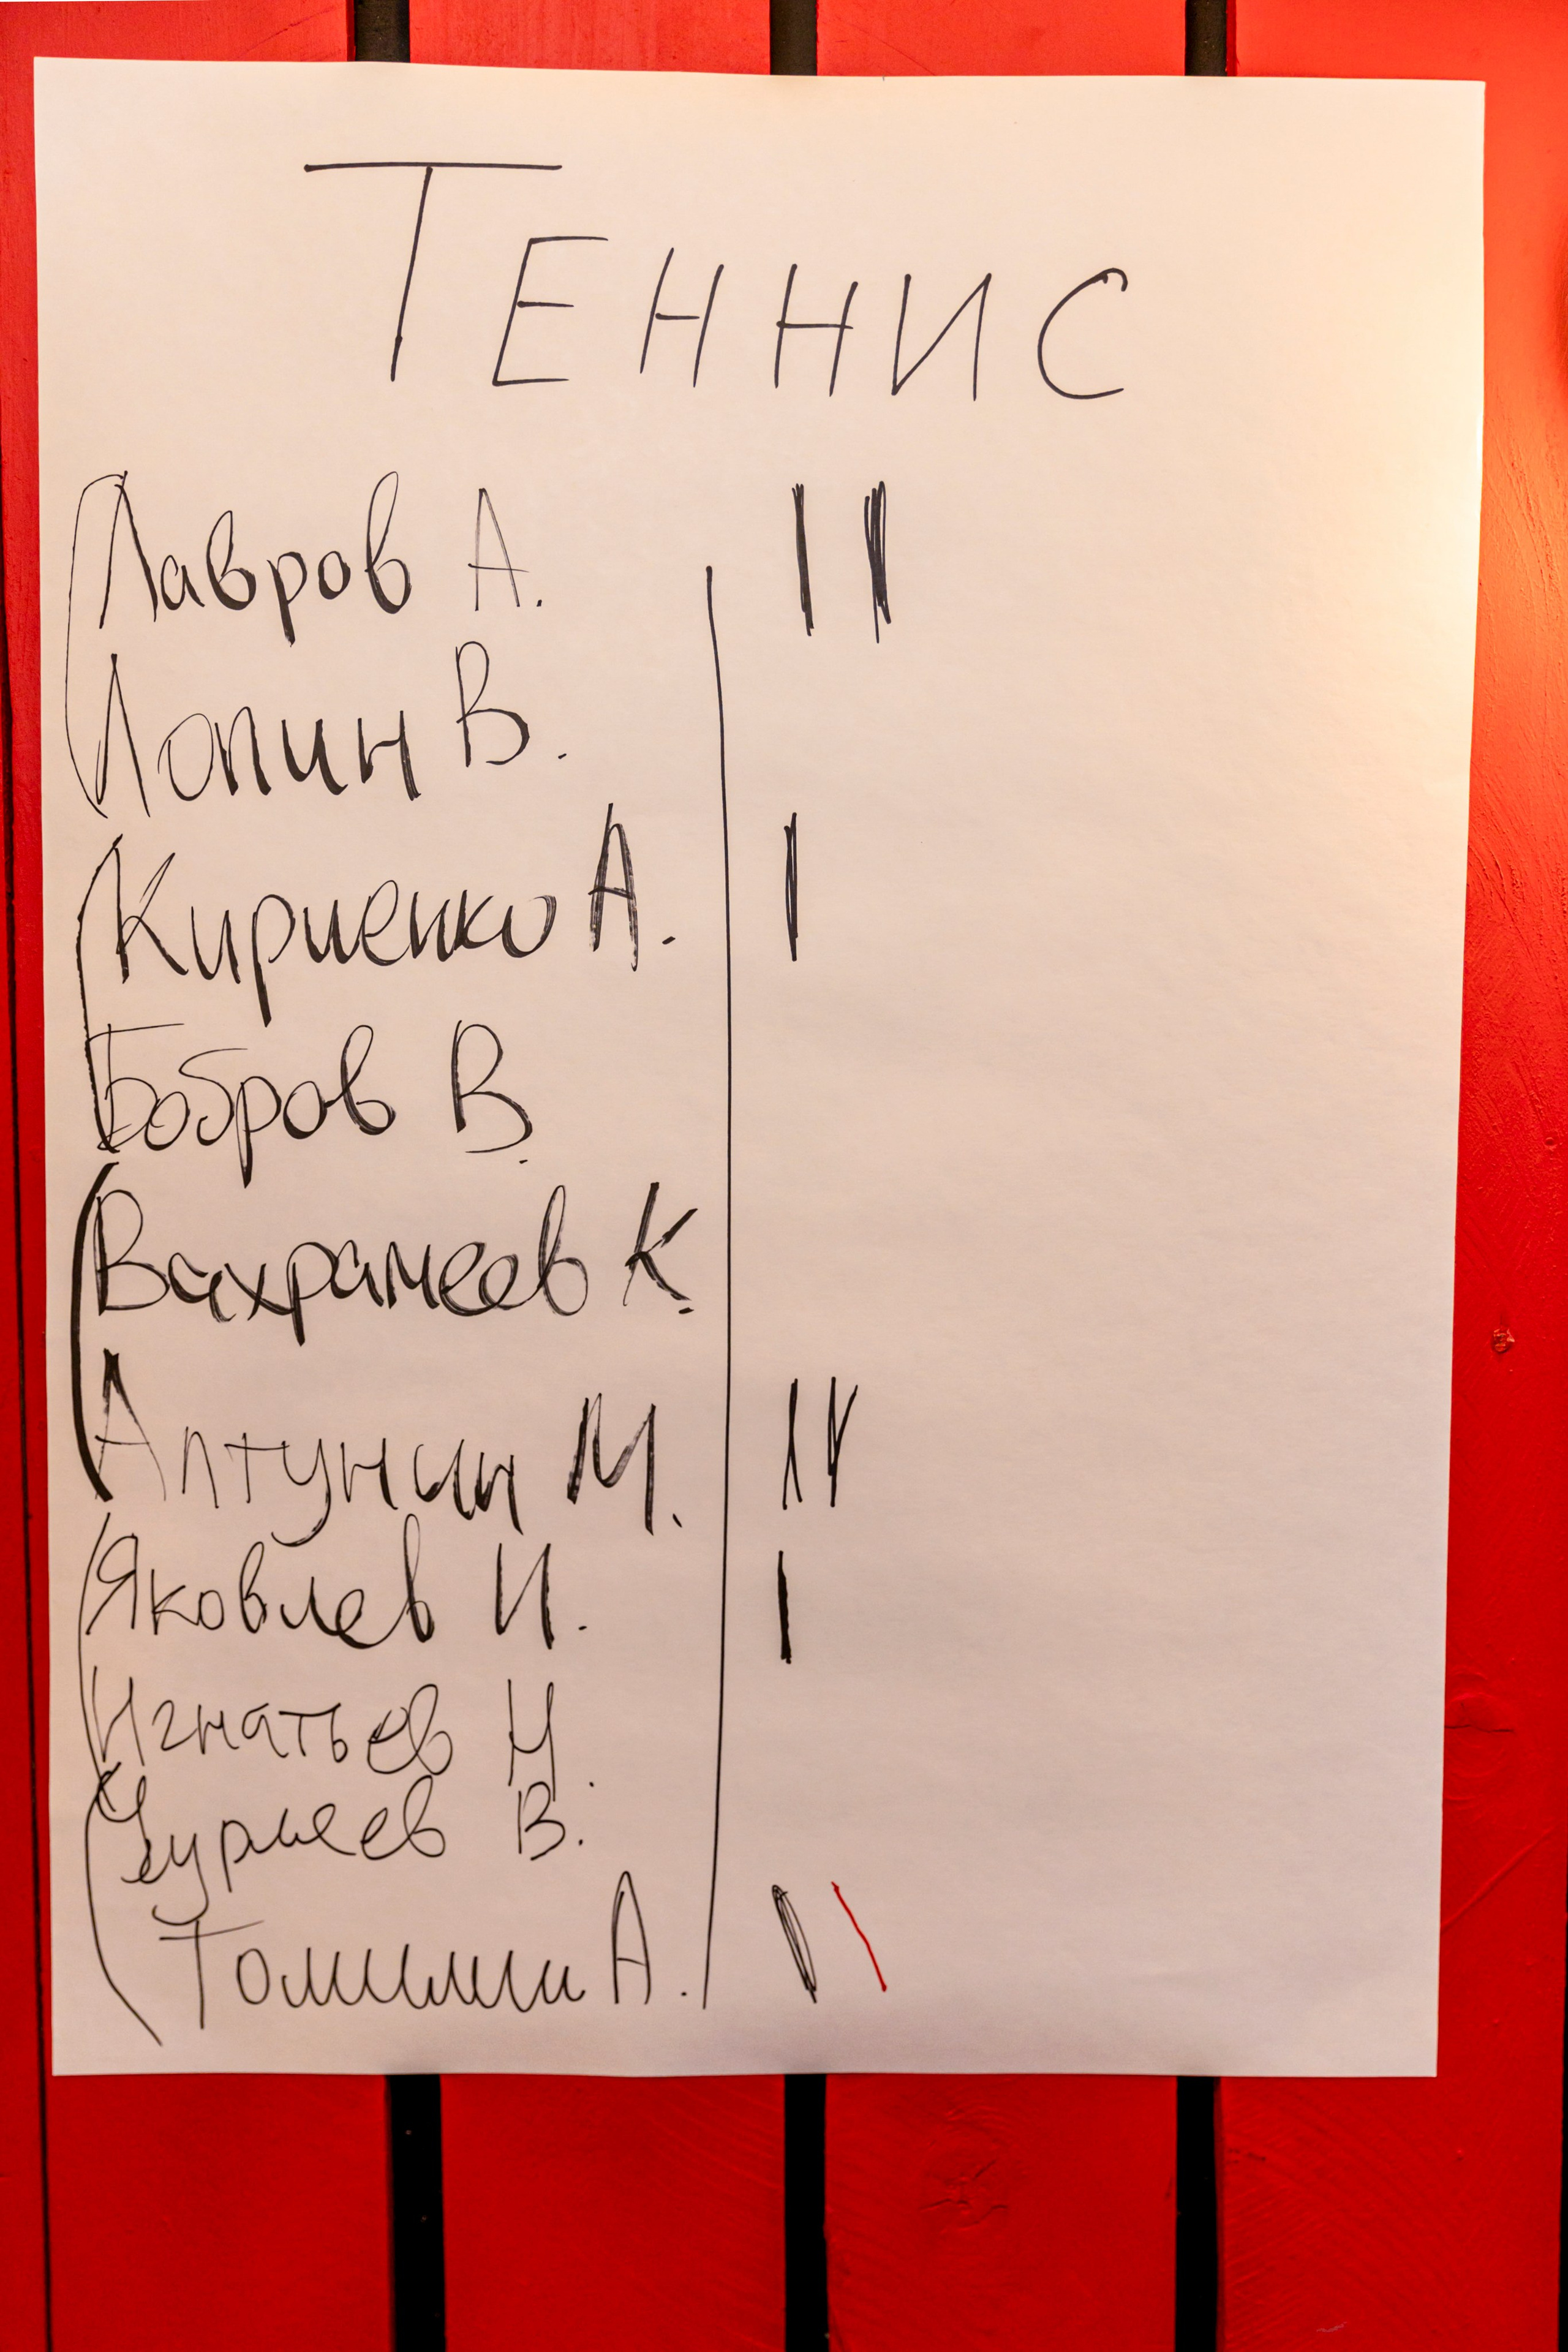 Теннис
Лавров А. II
Лопин В.
Кириенко А. I
Бобров В.
Вахрамеев К.
Алтунин М. II
Яковлев И. I
Игнатьев Н.
В.
А. II